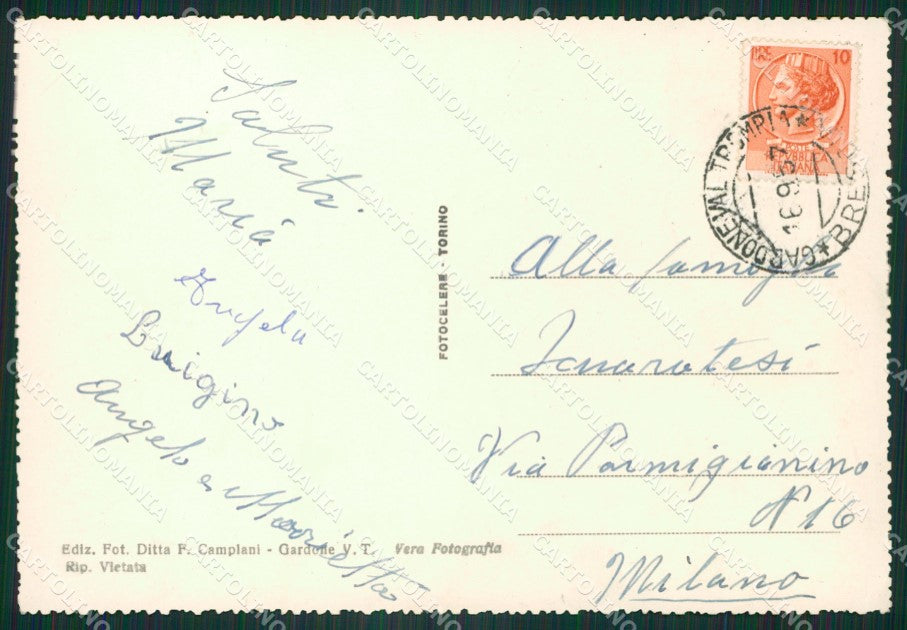 Saluti
Maria
Angela
Luigino
Angelo e Marietta
Ediz. Fot. Ditta F. Campiani - Gardone V. T. Vera Fotografia
Rip. Vietata
FOTOCELERE - TORINO
LIRE 10
POSTE
REPUBBLICA
ITALIANA
GARDONE VAL TROMPIA * BRESCIA *
Alla famiglia
Via Parmigianino
N 16
Milano
CARTOLINOMANIA